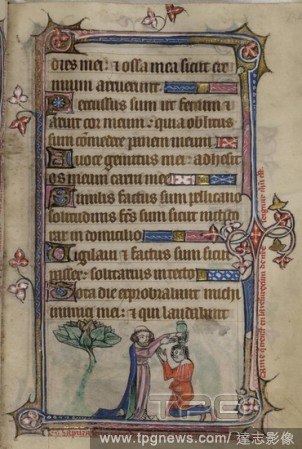 dies mei: & ossa mea sicut cre
mium aruerunt
Percussus sum ut fenum &
aruit cor meum: quia oblitus
sum comedere panem meum
A voce gemitus mei: adhesit
os meum carni mee
Similis factus sum pellicano
solitudinis: factus sum sicut nictico
rax in domicilio
Vigilaui & factus sum sicut
passer: solitarius in tecto
Tota die exprobrabant michi
inimici mei: & qui laudabant
TPG
www.tpgnews.com / 達志影像